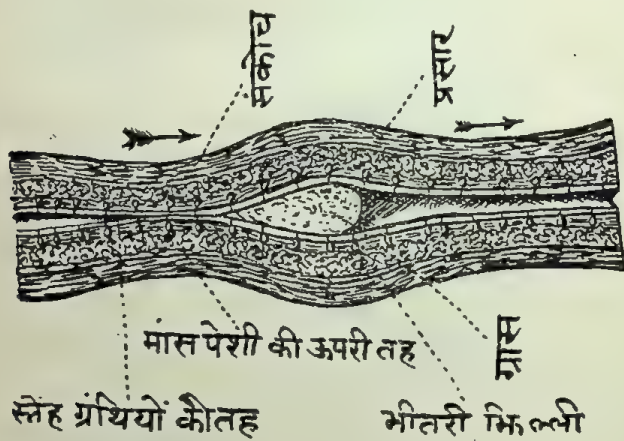 संकोच
प्रसार
मांस पेशी की ऊपरी तह
ग्रास
स्नेह ग्रंथियों की तह
भीतरी झिल्ली